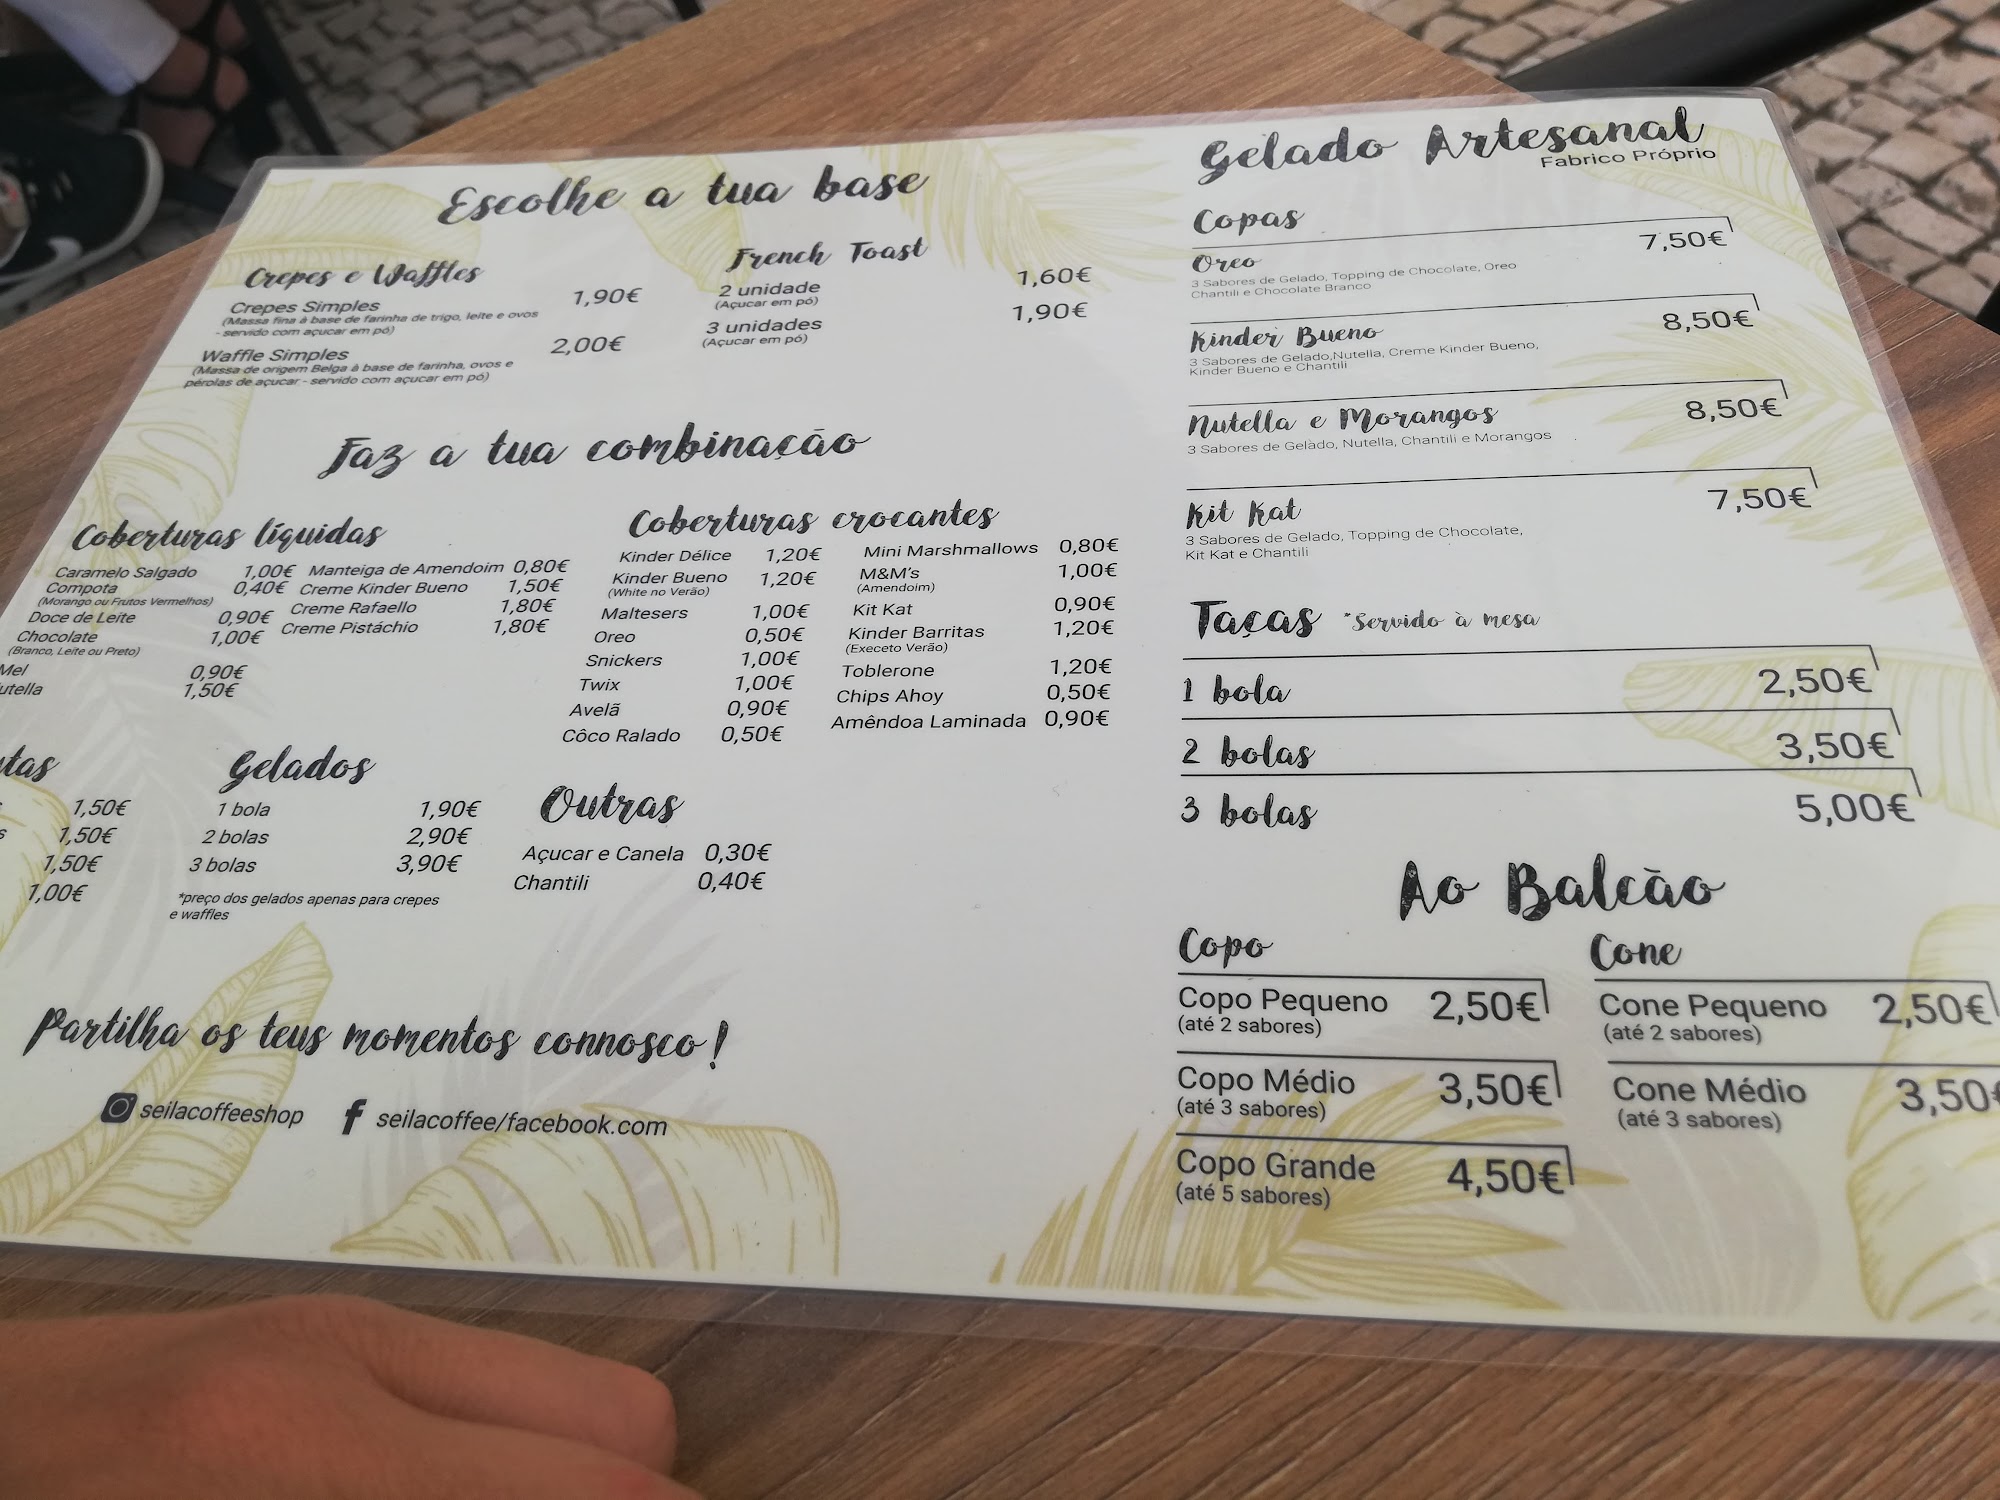 Escolhe a tua base
Crepes e Waffles
Crepes Simples 1,90€
(Massa fina à base de farinha de trigo, leite e ovos
- servido com açucar em pó)
Waffle Simples 2,00€
(Massa de origem Belga à base de farinha, ovos e
pérolas de açucar - servido com açucar em pó)
French Toast
2 unidade 1,60€
(Açucar em pó)
3 unidades 1,90€
(Açucar em pó)
Faz a tua combinação
Coberturas líquidas
Caramelo Salgado 1,00€
Compota 0,40€
(Morango ou Frutos Vermelhos)
Doce de Leite 0,90€
Chocolate 1,00€
(Branco, Leite ou Preto)
Mel 0,90€
utella 1,50€
Manteiga de Amendoim 0,80€
Creme Kinder Bueno 1,50€
Creme Rafaello 1,80€
Creme Pistáchio 1,80€
Coberturas crocantes
Kinder Délice 1,20€
Kinder Bueno 1,20€
(White no Verão)
Maltesers 1,00€
Oreo 0,50€
Snickers 1,00€
Twix 1,00€
Avelã 0,90€
Côco Ralado 0,50€
Mini Marshmallows 0,80€
M&M's 1,00€
(Amendoim)
Kit Kat 0,90€
Kinder Barritas 1,20€
(Execeto Verão)
Toblerone 1,20€
Chips Ahoy 0,50€
Amêndoa Laminada 0,90€
tas
1,50€
s 1,50€
1,50€
1,00€
Gelados
1 bola 1,90€
2 bolas 2,90€
3 bolas 3,90€
*preço dos gelados apenas para crepes
e waffles
Outras
Açucar e Canela 0,30€
Chantili 0,40€
Partilha os teus momentos connosco!
seilacoffeeshop
seilacoffee/facebook.com
Gelado Artesanal
Fabrico Próprio
Copas
Oreo 7,50€
3 Sabores de Gelado, Topping de Chocolate, Oreo
Chantili e Chocolate Branco
Kinder Bueno 8,50€
3 Sabores de Gelado,Nutella, Creme Kinder Bueno,
Kinder Bueno e Chantili
Nutella e Morangos 8,50€
3 Sabores de Gelàdo, Nutella, Chantili e Morangos
Kit Kat 7,50€
3 Sabores de Gelado, Topping de Chocolate,
Kit Kat e Chantili
Taças *Servido à mesa
1 bola 2,50€
2 bolas 3,50€
3 bolas 5,00€
Ao Balcão
Copo
Copo Pequeno 2,50€
(até 2 sabores)
Copo Médio 3,50€
(até 3 sabores)
Copo Grande 4,50€
(até 5 sabores)
Cone
Cone Pequeno 2,50€
(até 2 sabores)
Cone Médio 3,50€
(até 3 sabores)